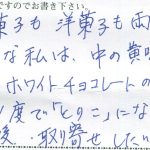 ですのでお書き下さい
菓子も 洋菓子も 両
な私は、中の黄味
ホワイトチョコレートの
度で「とりこ」にな
後 . 取り寄せしたい